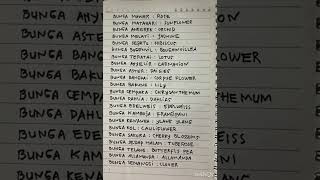 BUNGA MAWAR : ROSE
BUNGA MATAHARI : SUNFLOWER
BUNGA ANGGREK : ORCHID
BUNGA MELATI : JASMINE
BUNGA SEPATU : HIBISCUS
BUNGA BOGENVIL : BOUGAINVILLEA
BUNGA TERATAI : LOTUS
BUNGA ANYELIR : CARNATION
BUNGA ASTER : DAISIES
BUNGA BANGKAI : CORPSE FLOWER
BUNGA BAKUNG : LILY
BUNGA CEMPAKA : CHRYSANTHEMUM
BUNGA DAHLIA : DAHLIAS
BUNGA EDELWEIS : EDELWEISS
BUNGA KAMBOJA : FRANGIPANI
BUNGA KENANGA : YLANG YLANG
BUNGA KOL : CAULIFLOWER
BUNGA SAKURA : CHERRY BLOSSOMS
BUNGA SEDAP MALAM : TUBEROSE
BUNGA TELANG : BUTTERFLY PEA
BUNGA ALLAMANDA : ALLAMANDA
BUNGA SEMANGGI : CLOVER